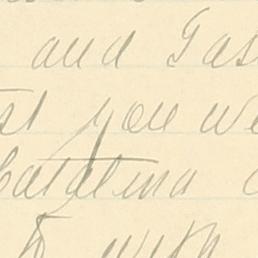 and Gas
st you we
Catalina
with